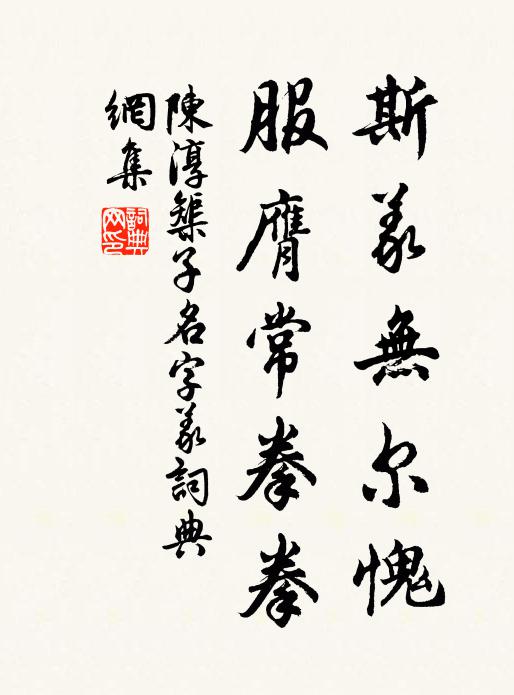 斯義無尔愧
服膺常拳拳
陳淳榘子名字義詞典
網集
詞典
网印